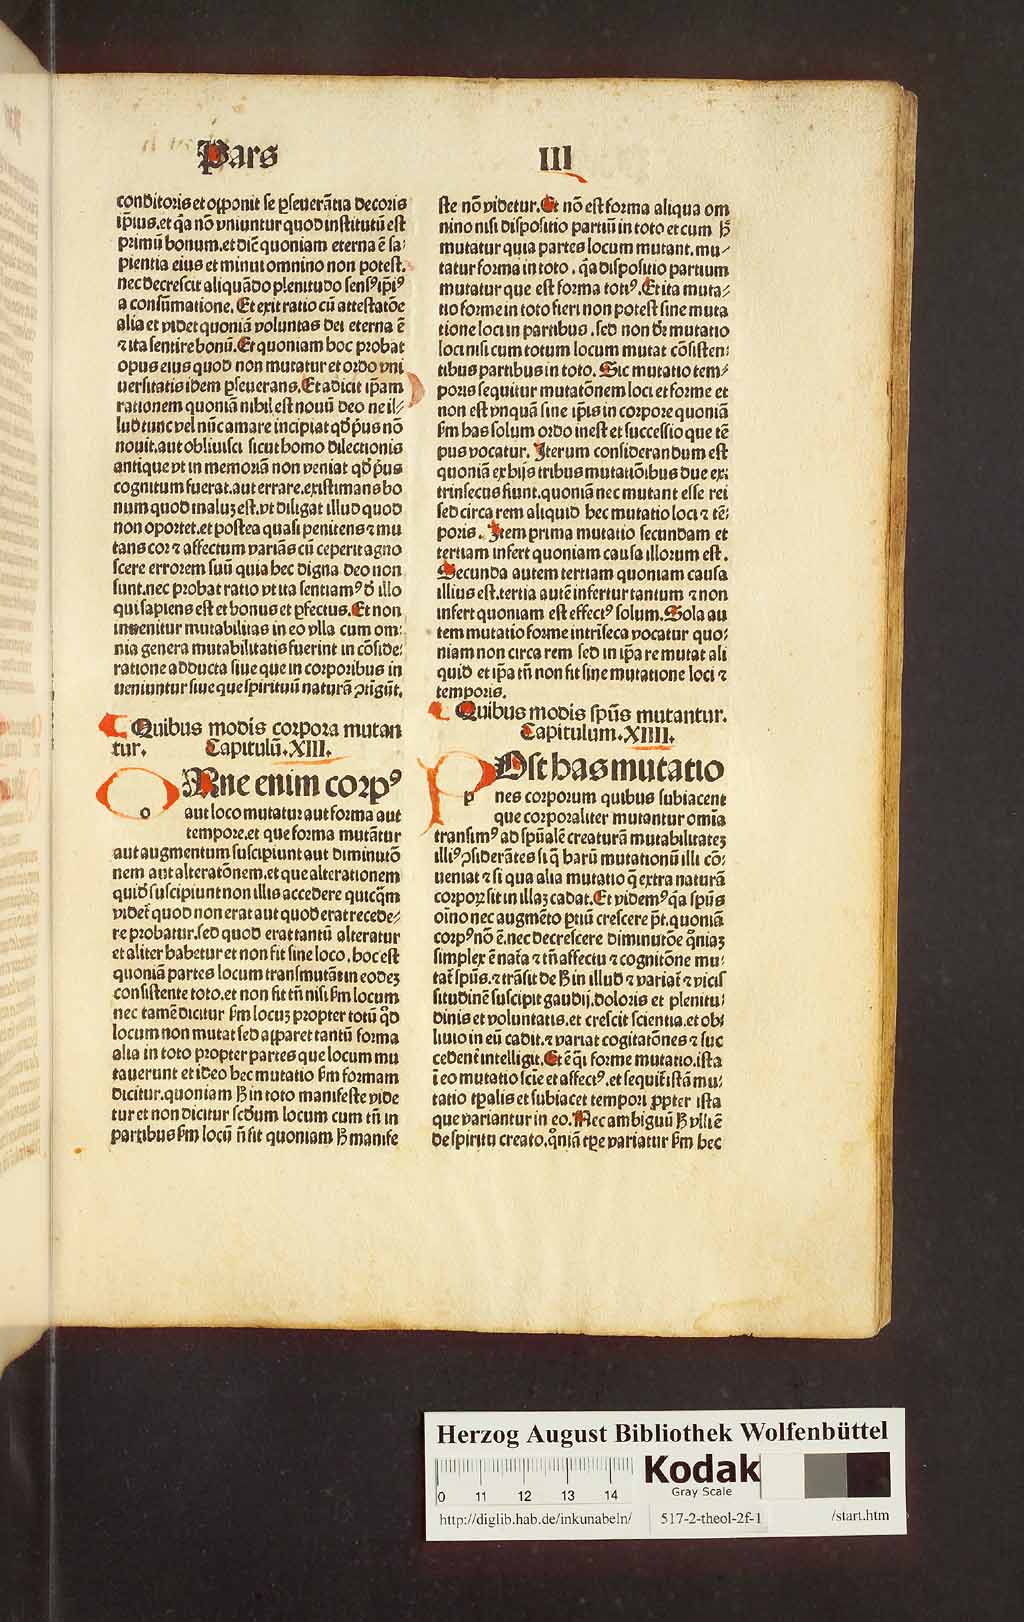 Pars III
conditoris et opponit se ꝑseuerãtia decoris
ip̃ius.et q̃a nõ vniuntur quod institutũ est
primũ bonum.et dic̃ quoniam eterna ẽ sa⸗
pientia eius et minui omnino non potest.
nec decrescit aliquãdo plenitudo sensꝰ ip̃iꝰ
a consũmatione. Et exit ratio cũ attestatõe
alia et videt quoniã voluntas dei eterna ẽ
⁊ ita sentire bonũ.Et quoniam hoc probat
opus eius quod non mutatur et ordo vni
uersitatis idem ꝑseuerans.Et adicit ip̃am
rationem quoniã nihil est nouũ deo ne il⸗
lud tunc vel nũc amare incipiat qd̃ p̃us nõ
nouit.aut obliuisci sicut homo dilectionis
antique vt in memoriã non veniat qd̃ p̃us
cognitum fuerat.aut errare.existimans bo
num quod maluʒ est.vt diligat illud quod
non oportet.et postea quasi penitens ⁊ mu
tans cor ⁊ affectum variãs cũ ceperit agno
scere errorem suũ quia hec digna deo non
sunt.nec probat ratio vt ita sentiamꝰ d̃ illo
qui sapiens est et bonus et ꝑfectus.Et non
inuenitur mutabilitas in eo vlla cum om⸗
nia genera mutabilitatis fuerint in cõside⸗
ratione adducta siue que in corporibus in
ueniuntur siue que spirituũ naturã ↄtigũt.
Quibus modis corpora mutan
tur. Capitulũ.XIII.
OMne enim corpꝰ
aut loco mutatur aut forma aut
tempore.et que forma mutãtur
aut augmentum suscipiunt aut diminutõ
nem aut alteratõnem.et que alterationem
quid̃ suscipiunt non illis accedere quicq̃m
videt̃ quod non erat aut quod erat recede⸗
re probatur.sed quod erat tantũ alteratur
et aliter habetur et non fit sine loco.hoc est
quoniã partes locum transmutãt in eodeʒ
consistente toto.et non fit tñ nisi ẜm locum
nec tamẽ dicitur ẜm locuʒ propter totũ qd̃
locum non mutat sed apparet tantũ forma
alia in toto propter partes que locum mu
tauerunt et ideo hec mutatio ẜm formam
dicitur.quoniam ꝫ in toto manifeste vide
tur et non dicitur scd̃um locum cum tñ in
partibus ẜm locũ ñ sit quoniam ꝫ manife
ste nõ videtur.Et nõ est forma aliqua om
nino nisi dispositio partiũ in toto et cum ꝫ
mutatur quia partes locum mutant.mu⸗
tatur forma in toto.q̃a dispositio partium
mutatur que est forma totiꝰ.Et ita muta⸗
tio forme in toto fieri non potest sine muta
tione loci in partibus.sed non dr̃ mutatio
loci nisi cum totum locum mutat cõsisten⸗
tibus partibus in toto. Sic mutatio tem⸗
poris sequitur mutatõnem loci et forme et
non est vnquã sine ip̃is in corpore quoniã
ẜm has solum ordo inest et successio que tẽ
pus vocatur. Iterum considerandum est
quoniã ex hijs tribus mutatiõibus due ex⸗
trinsecus fiunt.quoniã nec mutant esse rei
sed circa rem aliquid hec mutatio loci ⁊ tẽ⸗
poris. Item prima mutatio secundam et
tertiam infert quoniam causa illorum est.
Secunda autem tertiam quoniam causa
illius est.tertia autẽ infertur tantum ⁊ non
infert quoniam est effectꝰ solum.Sola au
tem mutatio forme intrĩseca vocatur quo⸗
niam non circa rem sed in ip̃a re mutat ali
quid et ip̃a tñ non fit sine mutatione loci ⁊
temporis.
Quibus modis sp̃us mutantur.
Capitulum.XIIII.
POst has mutatio
nes corporum quibus subiacent
que corporaliter mutantur om̃ia
transimꝰ ad sp̃ualẽ creaturã mutabilitateʒ
illiꝰ ↄsiderãtes si q̃ harũ mutationũ illi cõ⸗
ueniat ⁊ si qua alia mutatio q̃ extra naturã
corpoꝝ sit in illaʒ cadat.Et videmꝰ q̃a sp̃us
oĩno nec augmẽto ꝑtiũ crescere p̃t.quoniã
corpꝰ nõ ẽ.nec decrescere diminutõe qñiaʒ
simplex ẽ nat̃a ⁊ tñ affectu ⁊ cognitõne mu⸗
tat̃ sp̃us.⁊ trãsit de ꝫ in illud ⁊ variat̃ ⁊ vicis
situdinẽ suscipit gaudij.doloris et plenitu⸗
dinis et voluntatis.et crescit scientia.et ob⸗
liuio in eũ cadit.⁊ variat cogitatiões ⁊ suc
cedent̃ intelligit.Et ẽ q̃i forme mutatio.ista
ĩ eo mutatio sciẽ et affectꝰ.et sequit̃ istã mu⸗
tatio tꝑalis et subiacet tempori ꝓpter ista
que variantur in eo.Nec ambiguũ ꝫ vlli ẽ
de spiritu creato.qñiã tꝑe variatur ẜm hec
Herzog August Bibliothek Wolfenbüttel
0 11 12 13 14
Kodak
Gray Scale
http://diglib.hab.de/inkunabeln/ 517-2-theol-2f-1 /start.htm